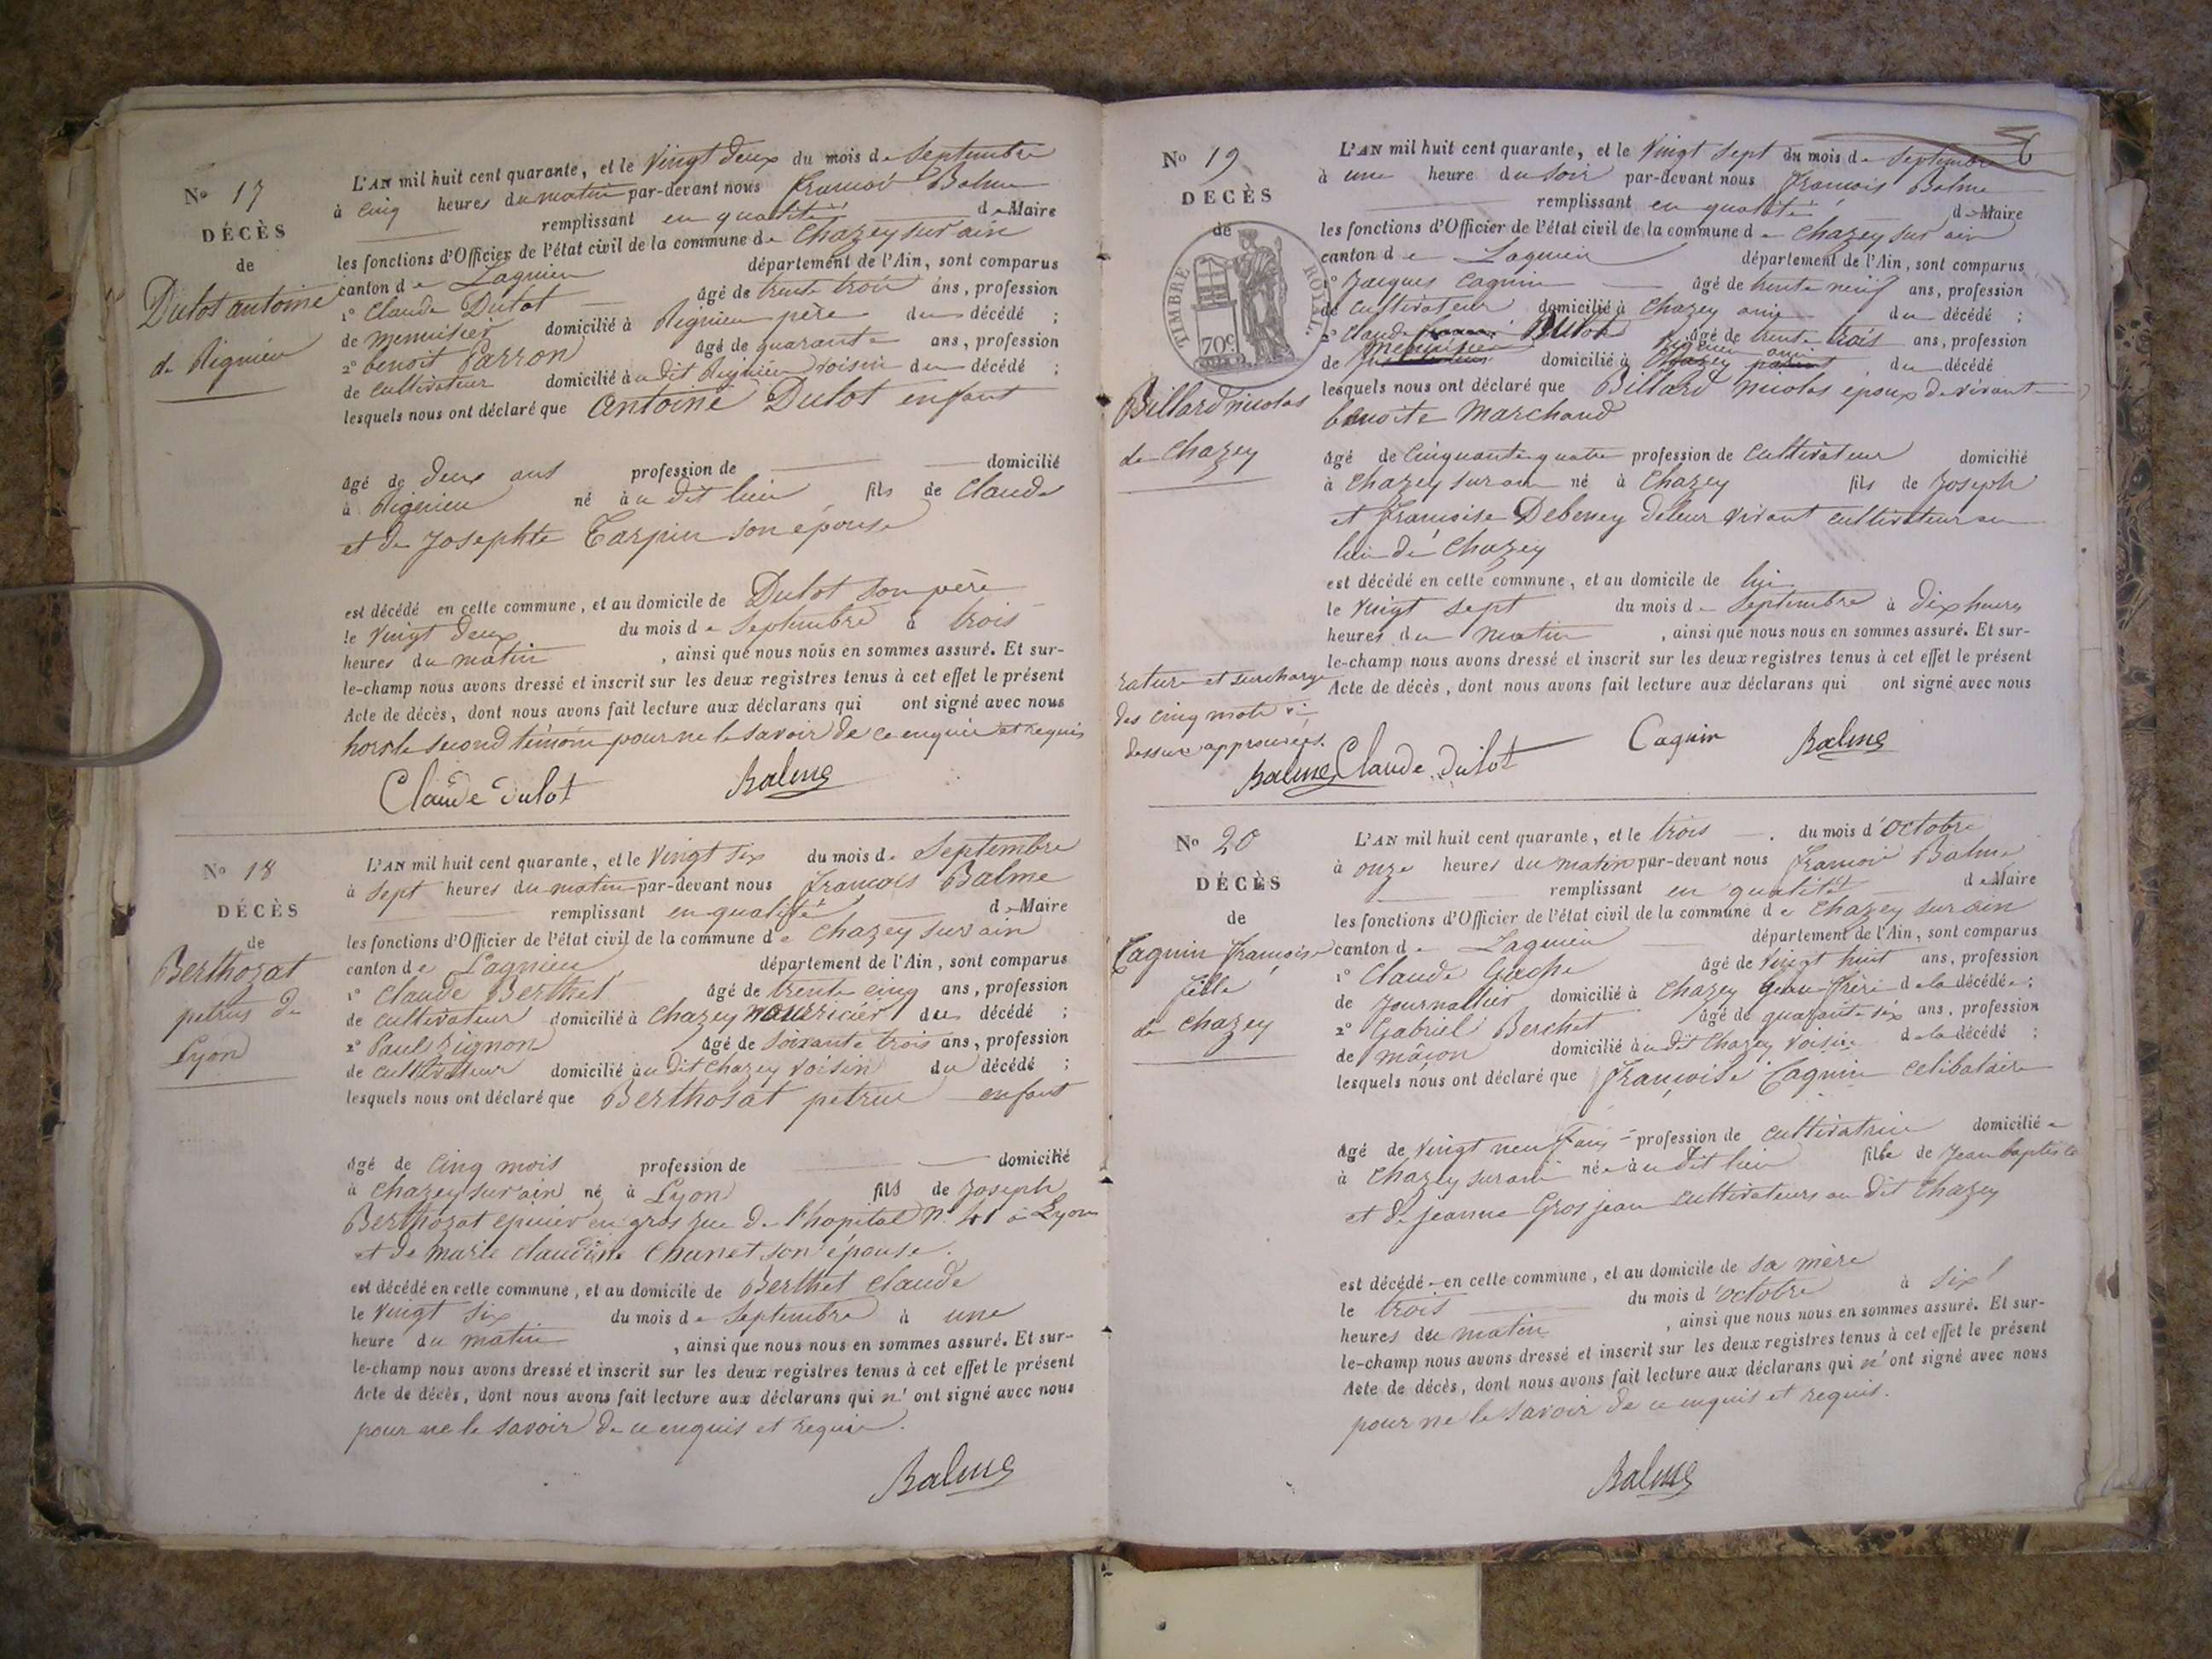 N° 17
DÉCÈS
de
Dulot antoine
de Rignieu
L'AN mil huit cent quarante, et le vingt deux du mois de Septembre
à cinq heures du matin par-devant nous françois Balme
remplissant en qualité de Maire
les fonctions d'Officier de l'état civil de la commune de Chazey sur ain
canton de Lagnieu département de l'Ain, sont comparus
1° Claude Dulot âgé de trente trois ans, profession
de menuisier domicilié à Rignieu père du décédé ;
2° benoit Parron âgé de quarante ans, profession
de cultivateur domicilié à udit Rignieu voisin du décédé ;
lesquels nous ont déclaré que Antoine Dulot enfant
âgé de deux ans profession de domicilié
à Rignieu né à u dit lieu fils de Claude
et de Josephte Tarpin son épouse
est décédé en cette commune, et au domicile de Dulot son père
le vingt deux du mois de Septembre à trois
heures du matin, ainsi que nous nous en sommes assuré. Et sur-
le-champ nous avons dressé et inscrit sur les deux registres tenus à cet effet le présent
Acte de décès, dont nous avons fait lecture aux déclarans qui ont signé avec nous
hors le second témoin pour ne le savoir de ce enquis et requis
Claude Dulot Balme
N° 18
DÉCÈS
de
Berthozat
petrus de
Lyon
L'AN mil huit cent quarante, et le vingt six du mois de Septembre
à sept heures du matin par-devant nous françois Balme
remplissant en qualité de Maire
les fonctions d'Officier de l'état civil de la commune de Chazey sur ain
canton de Lagnieu département de l'Ain, sont comparus
1° Claude Berthet âgé de trente cinq ans, profession
de cultivateur domicilié à Chazey nourricier du décédé ;
2° Paul Zignon âgé de soixante trois ans, profession
de cultivateur domicilié à u dit Chazey voisin du décédé ;
lesquels nous ont déclaré que Berthosat petrus enfant
âgé de cinq mois profession de domicilié
à Chazey sur ain né à Lyon fils de Joseph
Berthozat epicier en gros rue de l'hopital N° 41 à Lyon
et de marie claudine Chanet son épouse.
est décédé en cette commune, et au domicile de Berthet Claude
le vingt six du mois de Septembre à une
heure du matin, ainsi que nous nous en sommes assuré. Et sur-
le-champ nous avons dressé et inscrit sur les deux registres tenus à cet effet le présent
Acte de décès, dont nous avons fait lecture aux déclarans qui n' ont signé avec nous
pour ne le savoir de ce enquis et requis.
Balme
N° 19
DÉCÈS
de
TIMBRE ROYAL
70c
Billard nicolas
de Chazey
6
L'AN mil huit cent quarante, et le vingt sept du mois de Septembre
à une heure du soir par-devant nous françois Balme
remplissant en qualité de Maire
les fonctions d'Officier de l'état civil de la commune de Chazey sur ain
canton de Lagnieu département de l'Ain, sont comparus
1° Jacques Cagnin âgé de trente neuf ans, profession
de cultivateur domicilié à Chazey ami du décédé ;
2° Claude Dulot âgé de trente trois ans, profession
de menuisier domicilié à Rignieu ami du décédé
lesquels nous ont déclaré que Billard nicolas epoux de vivante
benoite Marchand
âgé de cinquante quatre profession de cultivateur domicilié
à Chazey sur ain né à Chazey fils de Joseph
et françoise Debeney deleur vivant cultivateur au
lieu de Chazey
est décédé en cette commune, et au domicile de lui
le vingt sept du mois de Septembre à dix heures
heures du matin, ainsi que nous nous en sommes assuré. Et sur-
le-champ nous avons dressé et inscrit sur les deux registres tenus à cet effet le présent
Acte de décès, dont nous avons fait lecture aux déclarans qui ont signé avec nous
rature et surcharge
des cinq mots ci
dessus approuvées.
Balme Claude Dulot Cagnin Balme
N° 20
DÉCÈS
de
Cagnin françoise
fille
de Chazey
L'AN mil huit cent quarante, et le trois du mois d'octobre
à onze heures du matin par-devant nous françois Balme
remplissant en qualité de Maire
les fonctions d'Officier de l'état civil de la commune de Chazey sur ain
canton de Lagnieu département de l'Ain, sont comparus
1° Claude Gache âgé de vingt huit ans, profession
de journallier domicilié à Chazey beau frère de la décédée ;
2° Gabriel Berchet âgé de quarante six ans, profession
de mâçon domicilié à u dit Chazey voisin de la décédé ;
lesquels nous ont déclaré que françoise Cagnin celibataire
âgé de vingt neuf ans profession de cultivatrice domiciliée
à Chazey sur ain née à u dit lieu fille de Jean baptiste
et de jeanne Grosjean cultivateurs au dit Chazey
est décédée en cette commune, et au domicile de sa mère
le trois du mois d'octobre à six
heures du matin, ainsi que nous nous en sommes assuré. Et sur-
le-champ nous avons dressé et inscrit sur les deux registres tenus à cet effet le présent
Acte de décès, dont nous avons fait lecture aux déclarans qui n' ont signé avec nous
pour ne le savoir de ce enquis et requis.
Balme